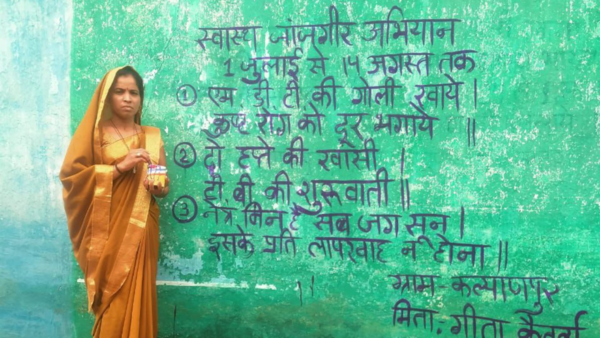 स्वास्थ जांजगीर अभियान
1 जुलाई से 14 अगस्त तक
① एम. डी टी की गोली खाये।
कुष्ट रोग को दूर भगाये ॥
② दो हप्ते की खाँसी
टी. बी. की शुरूवाती ॥
③ नेत्र मिन है सब जग सून।
इसके प्रति लापरवाह न होना ॥
ग्राम - कल्याणपुर
मिता. गीता कैवर्त्य